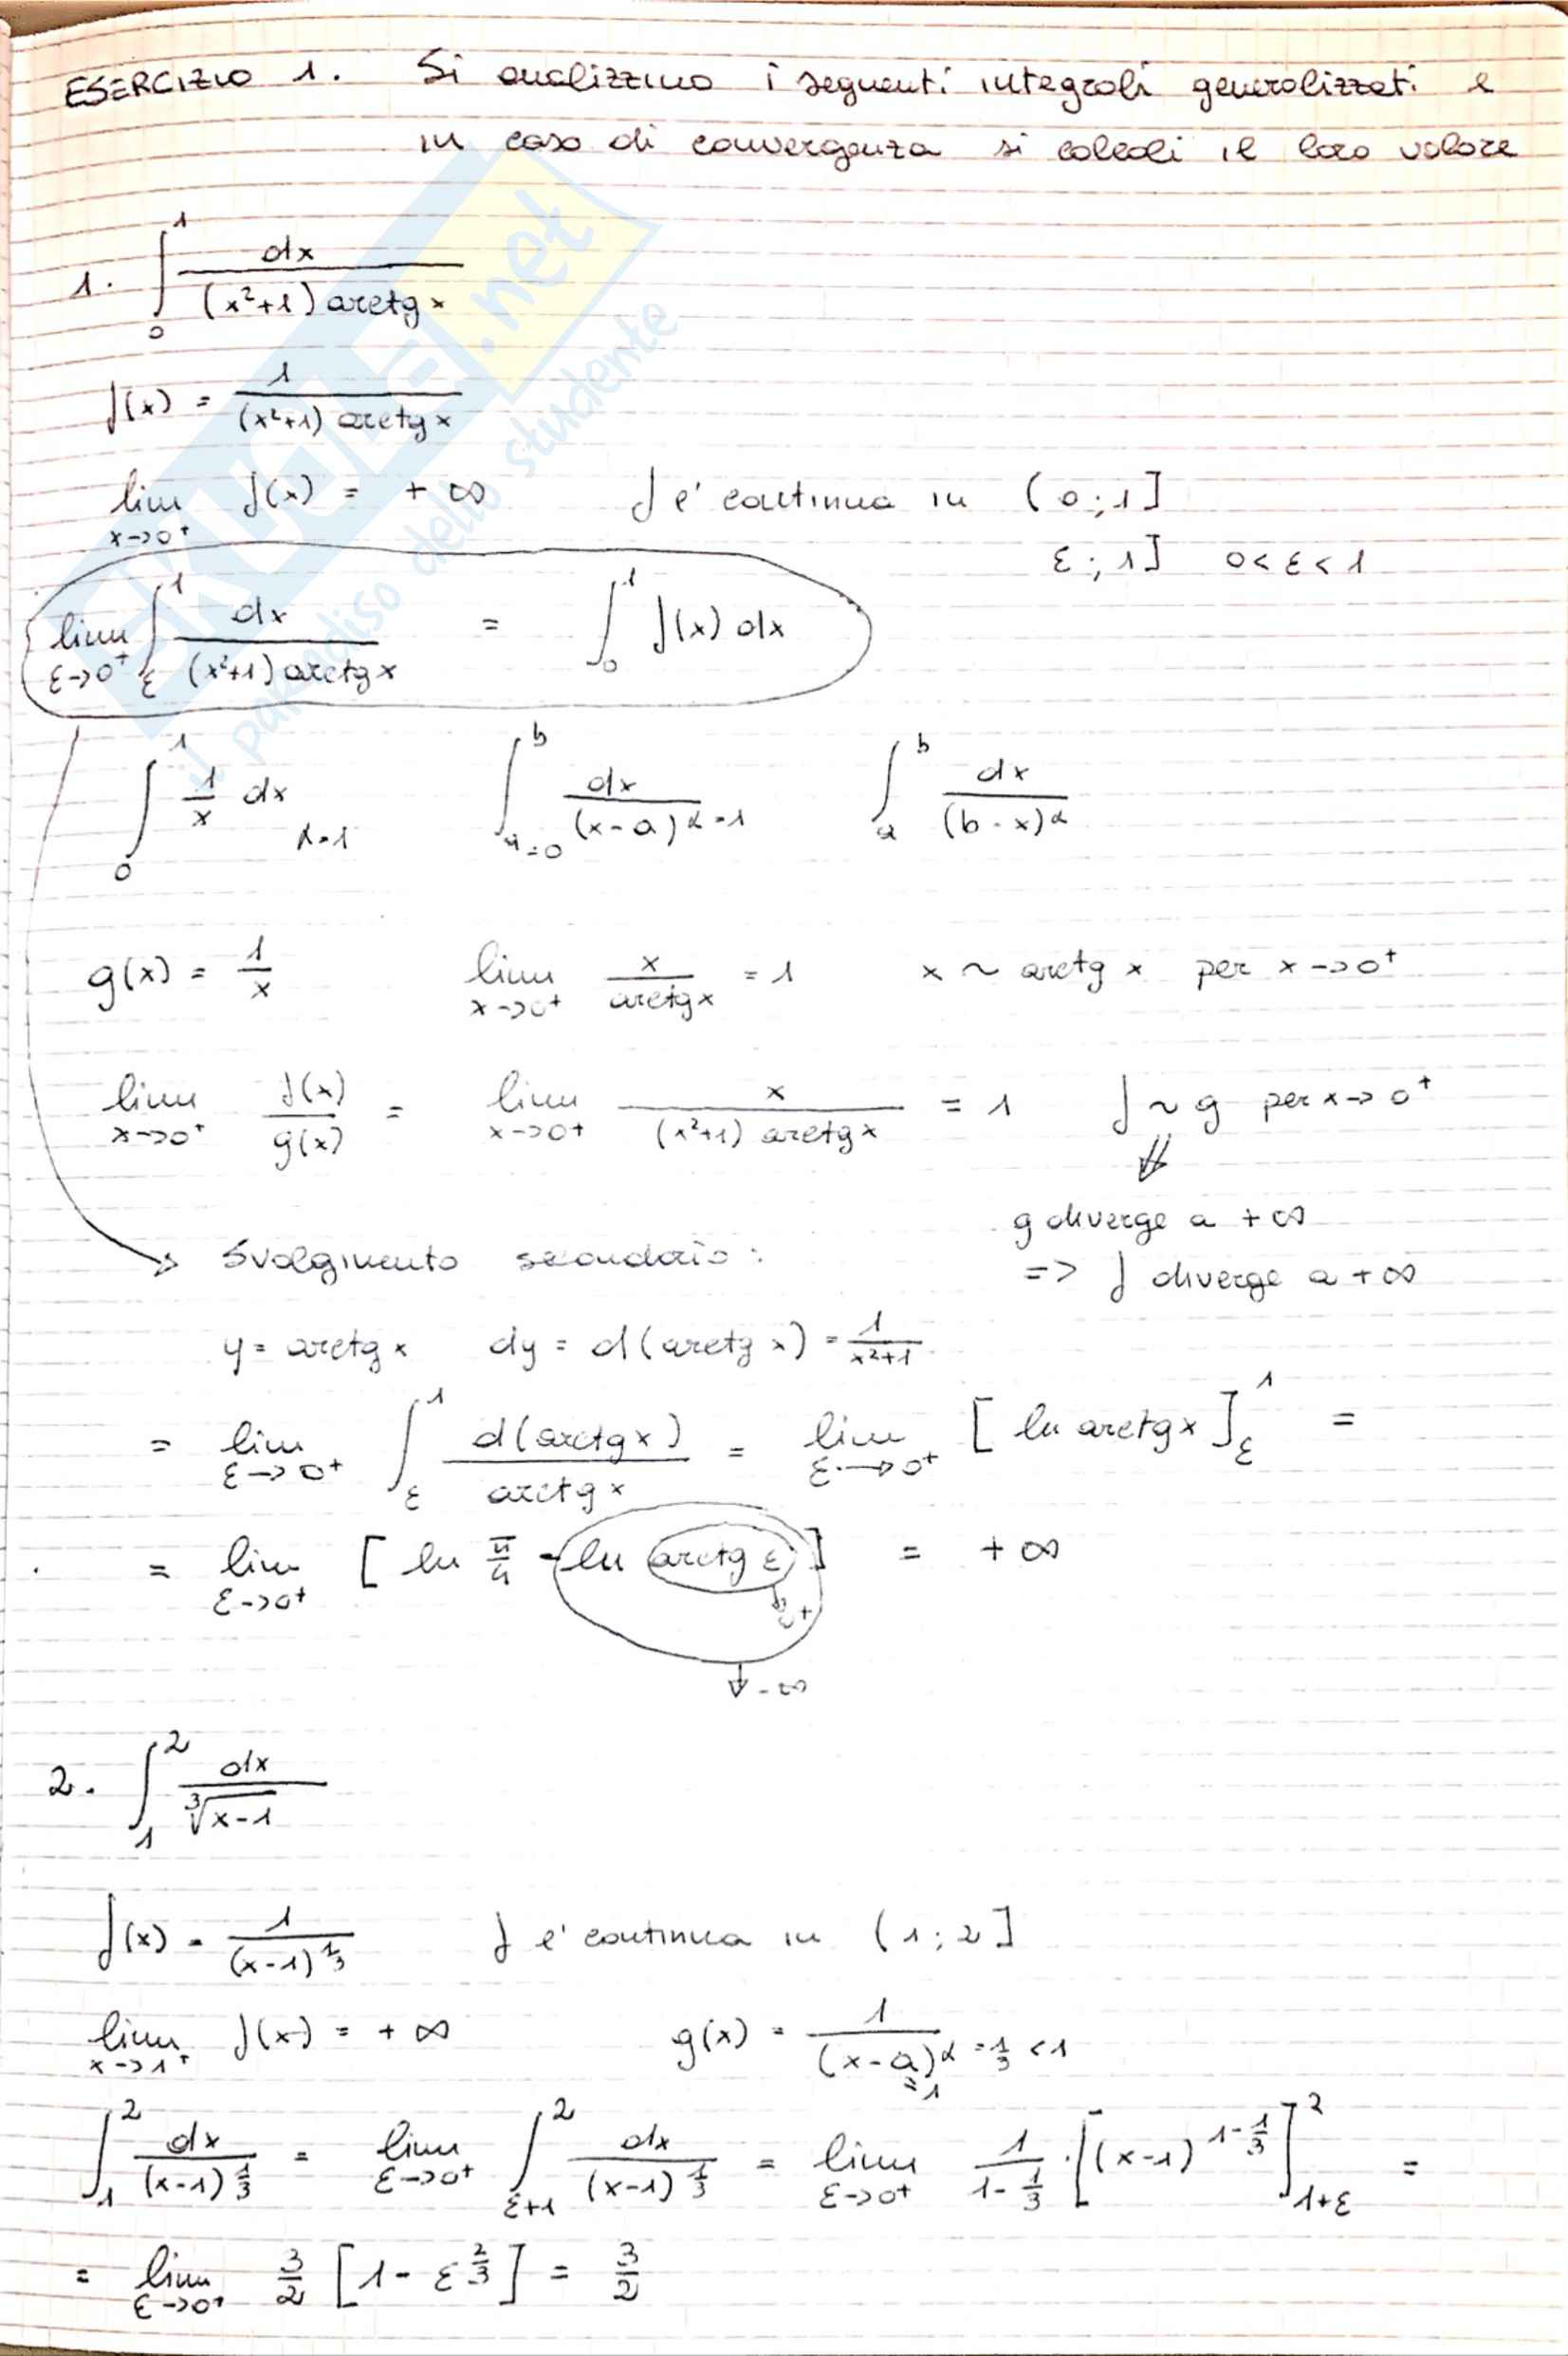 ESERCIZIO 1. Si analizzino i seguenti integrali generalizzati e
in caso di convergenza si calcoli il loro valore
1. ∫_0^1 dx / ((x²+1) arctg x)
f(x) = 1 / ((x²+1) arctg x)
lim_{x→0⁺} f(x) = +∞ f e' continua in (0;1]
ε;1] 0<ε<1
lim_{ε→0⁺} ∫_ε^1 dx / ((x²+1) arctg x) = ∫_0^1 f(x) dx
∫_0^1 1/x dx α=1 ∫_{a=0}^b dx / (x-a)^{α=1} ∫_a^b dx / (b-x)^α
g(x) = 1/x lim_{x→0⁺} x / arctg x = 1 x ~ arctg x per x→0⁺
lim_{x→0⁺} f(x)/g(x) = lim_{x→0⁺} x / ((x²+1) arctg x) = 1 f ~ g per x→0⁺
⇓
g diverge a +∞
→ Svolgimento secondario: => f diverge a +∞
y = arctg x dy = d(arctg x) = 1/(x²+1)
= lim_{ε→0⁺} ∫_ε^1 d(arctg x) / arctg x = lim_{ε→0⁺} [ln arctg x]_ε^1 =
= lim_{ε→0⁺} [ln π/4 - ln arctg ε] = +∞
↓ -∞
2. ∫_1^2 dx / ∛(x-1)
f(x) = 1 / (x-1)^{1/3} f e' continua in (1;2]
lim_{x→1⁺} f(x) = +∞ g(x) = 1 / (x-a)^α = 1/3 < 1
=1
∫_1^2 dx / (x-1)^{1/3} = lim_{ε→0⁺} ∫_{ε+1}^2 dx / (x-1)^{1/3} = lim_{ε→0⁺} 1/(1-1/3) · [(x-1)^{1-1/3}]_{1+ε}^2 =
= lim_{ε→0⁺} 3/2 [1 - ε^{2/3}] = 3/2
SKUOLA.net
il paradiso dello studente